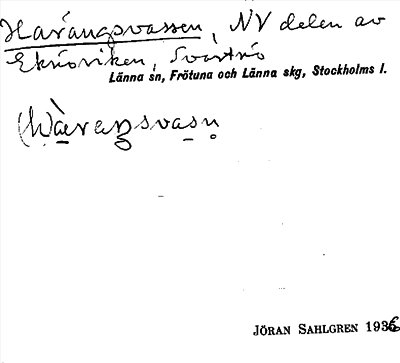 Harangsvassen, NV delen av
Eknöviken, Svartnö
Länna sn, Frötuna och Länna skg, Stockholms l.
JÖRAN SAHLGREN 1936